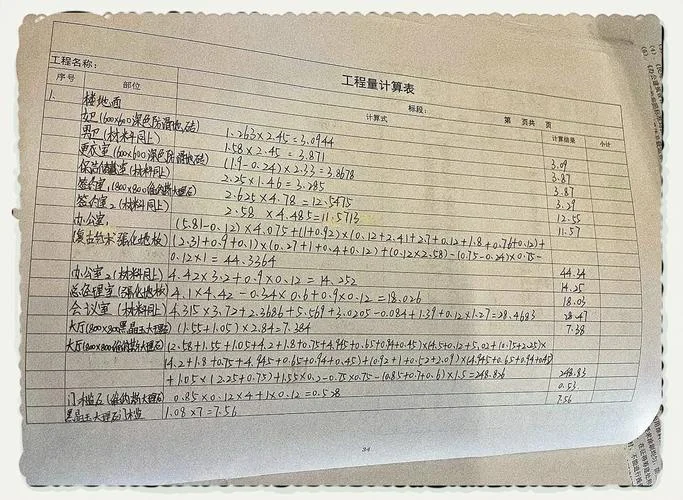 工程量计算表
工程名称： 标段： 第 页共 页
序号 部位 计算式 计算结果 小计
1. 楼地面
女卫(600×600深色防滑地砖) 1.263×2.45=3.0944 3.09
男卫(材料同上) 1.58×2.45=3.871 3.87
更衣室(600×600深色防滑地砖) (1.9-0.24)×2.33=3.8678 3.87
保洁储藏室(材料同上) 2.25×1.46=3.285 3.29
签约室1(800×800 大理石) 2.625×4.78=12.5475 12.55
签约室2(材料同上) 2.58×4.485=11.5713 11.57
办公室1 (5.81-0.12)×4.075+(1+0.92)×(0.12+2.41+2.7+0.12+1.8+0.76+0.12)+
复古艺术强化地板 (2.31+0.9+0.1)×(0.27+1+0.4+0.12)+(0.12×2.58)-(0.75-0.24)×0.75-
0.12×1=44.3364 44.34
办公室2(材料同上) 4.42×3.2+0.9×0.12=14.252 14.25
总经理室(强化地板) 4.1×4.42-0.34×0.6+0.9×0.12=18.026 18.03
会议室(材料同上) 4.315×3.72+2.3686+5.569+3.0205-0.084+1.39+0.12×1.27=28.4683 28.47
大厅(800×800黑晶玉大理石) (1.55+1.05)×2.84=7.384 7.38
大厅(800×800 大理石) (2.58+1.55+1.05+4.2+1.8+0.75+4.945+0.65+0.94+0.45)×(4.5+0.12+5.02+10.75+2.25)×
(4.2+1.8+0.75+4.945+0.65+0.94+0.45)+(0.92+1+0.52+2.09)×(4.945+0.65+0.94+0.45)
+1.05×(2.25+0.75)+1.55×0.2-0.75×0.75-(0.85+0.7+0.6)×1.5=248.826 248.83
门槛石( 大理石) 0.85×0.12×4+1×0.12=0.528 0.53
黑晶玉大理石门槛 1.08×7=7.56 7.56
34